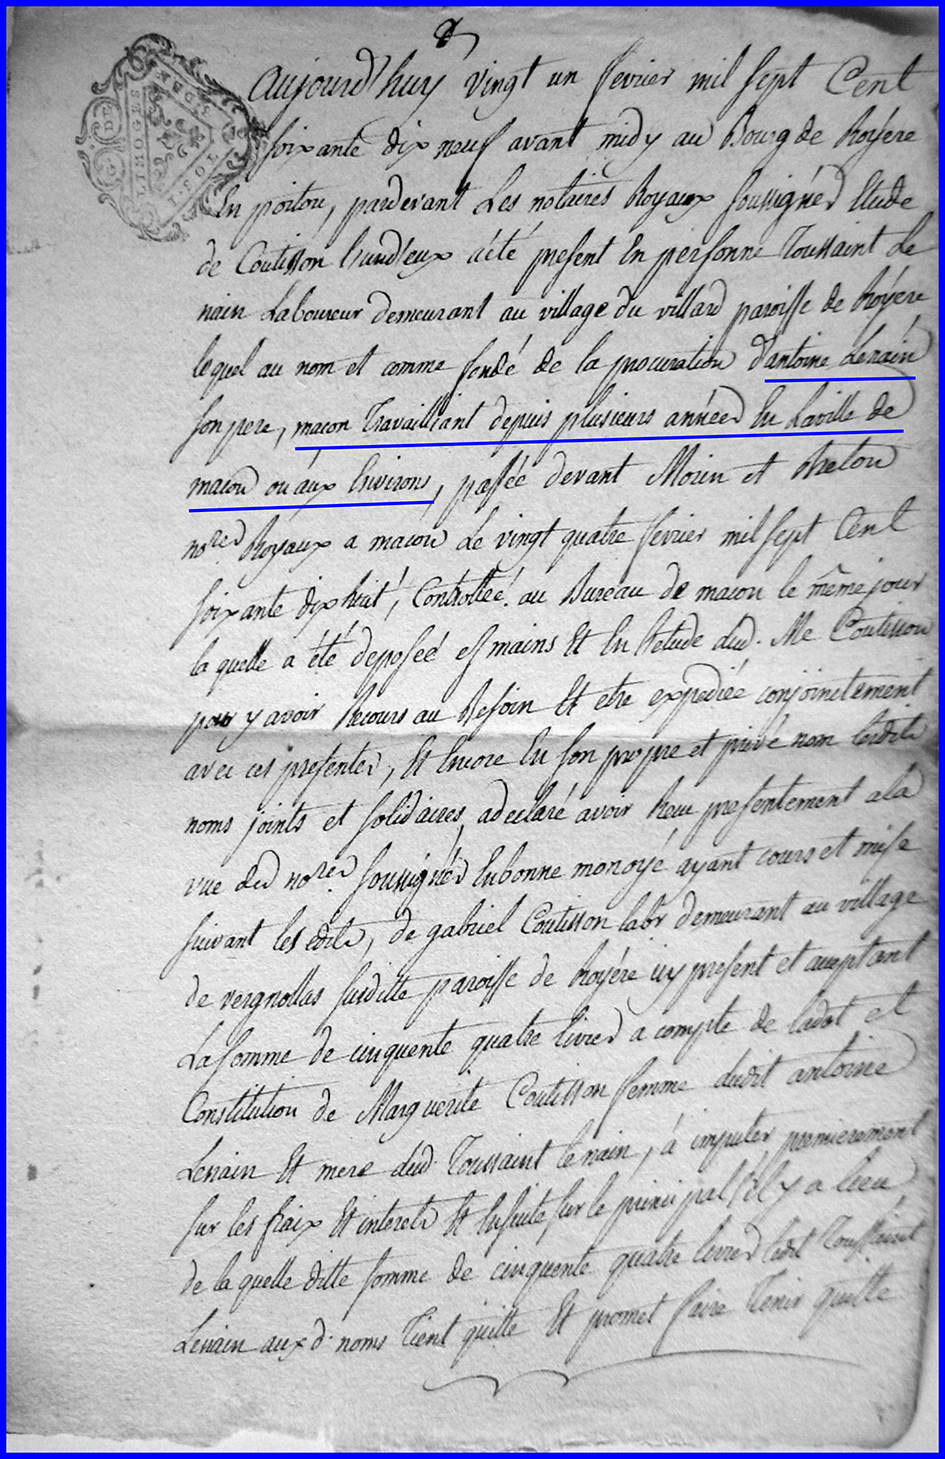 G. DE
LIMOGES
DEN.
1. SOL
Aujourd'huy vingt un fevrier mil sept Cent
soixante dix neuf avant midy au Bourg de Royere
En poitou, pardevant Les notaires Royaux soussignés Etude
de Coutisson L'und'eux a été present En personne Toussaint Le
nain Laboureur demeurant au village du villard paroisse de Royére
lequel au nom et comme fondé de la procuration d'antoine Lenain
son pere, maçon Travaillant depuis plusieurs années En Laville de
macon ou aux Environs, passée devant Morin et
nores Royaux a macon Le vingt quatre fevrier mil sept Cent
soixante dix huit, Controllée au Bureau de macon le même jour
la quelle a été deposée es mains Et En l'etude dud. Me Coutisson
pour y avoir Recours au Besoin Et etre expediée conjoinctement
avec ces presentes, Et Encore En son propre et privé nom
noms joints et solidaires, a declaré avoir Receu presentement a la
vue des nores soussignés En bonne monoye ayant cours et mise
suivant les edits, de gabriel Coutisson labr demeurant au village
de vergnollas susditte paroisse de Royére icy present et acceptant
La somme de cinquente quatre livres a compte de la dot et
Constitution de Marguerite Coutisson femme dudit antoine
Lenain Et mere dud. Toussaint le nain, à imputer premierement
sur les fraix Et interets Et Ensuite sur le principal s'il y a lieu
de la quelle ditte somme de cinquente quatre livres ledit Toussaint
Lenain aux d. noms Tient quitte Et promet faire Tenir quitte